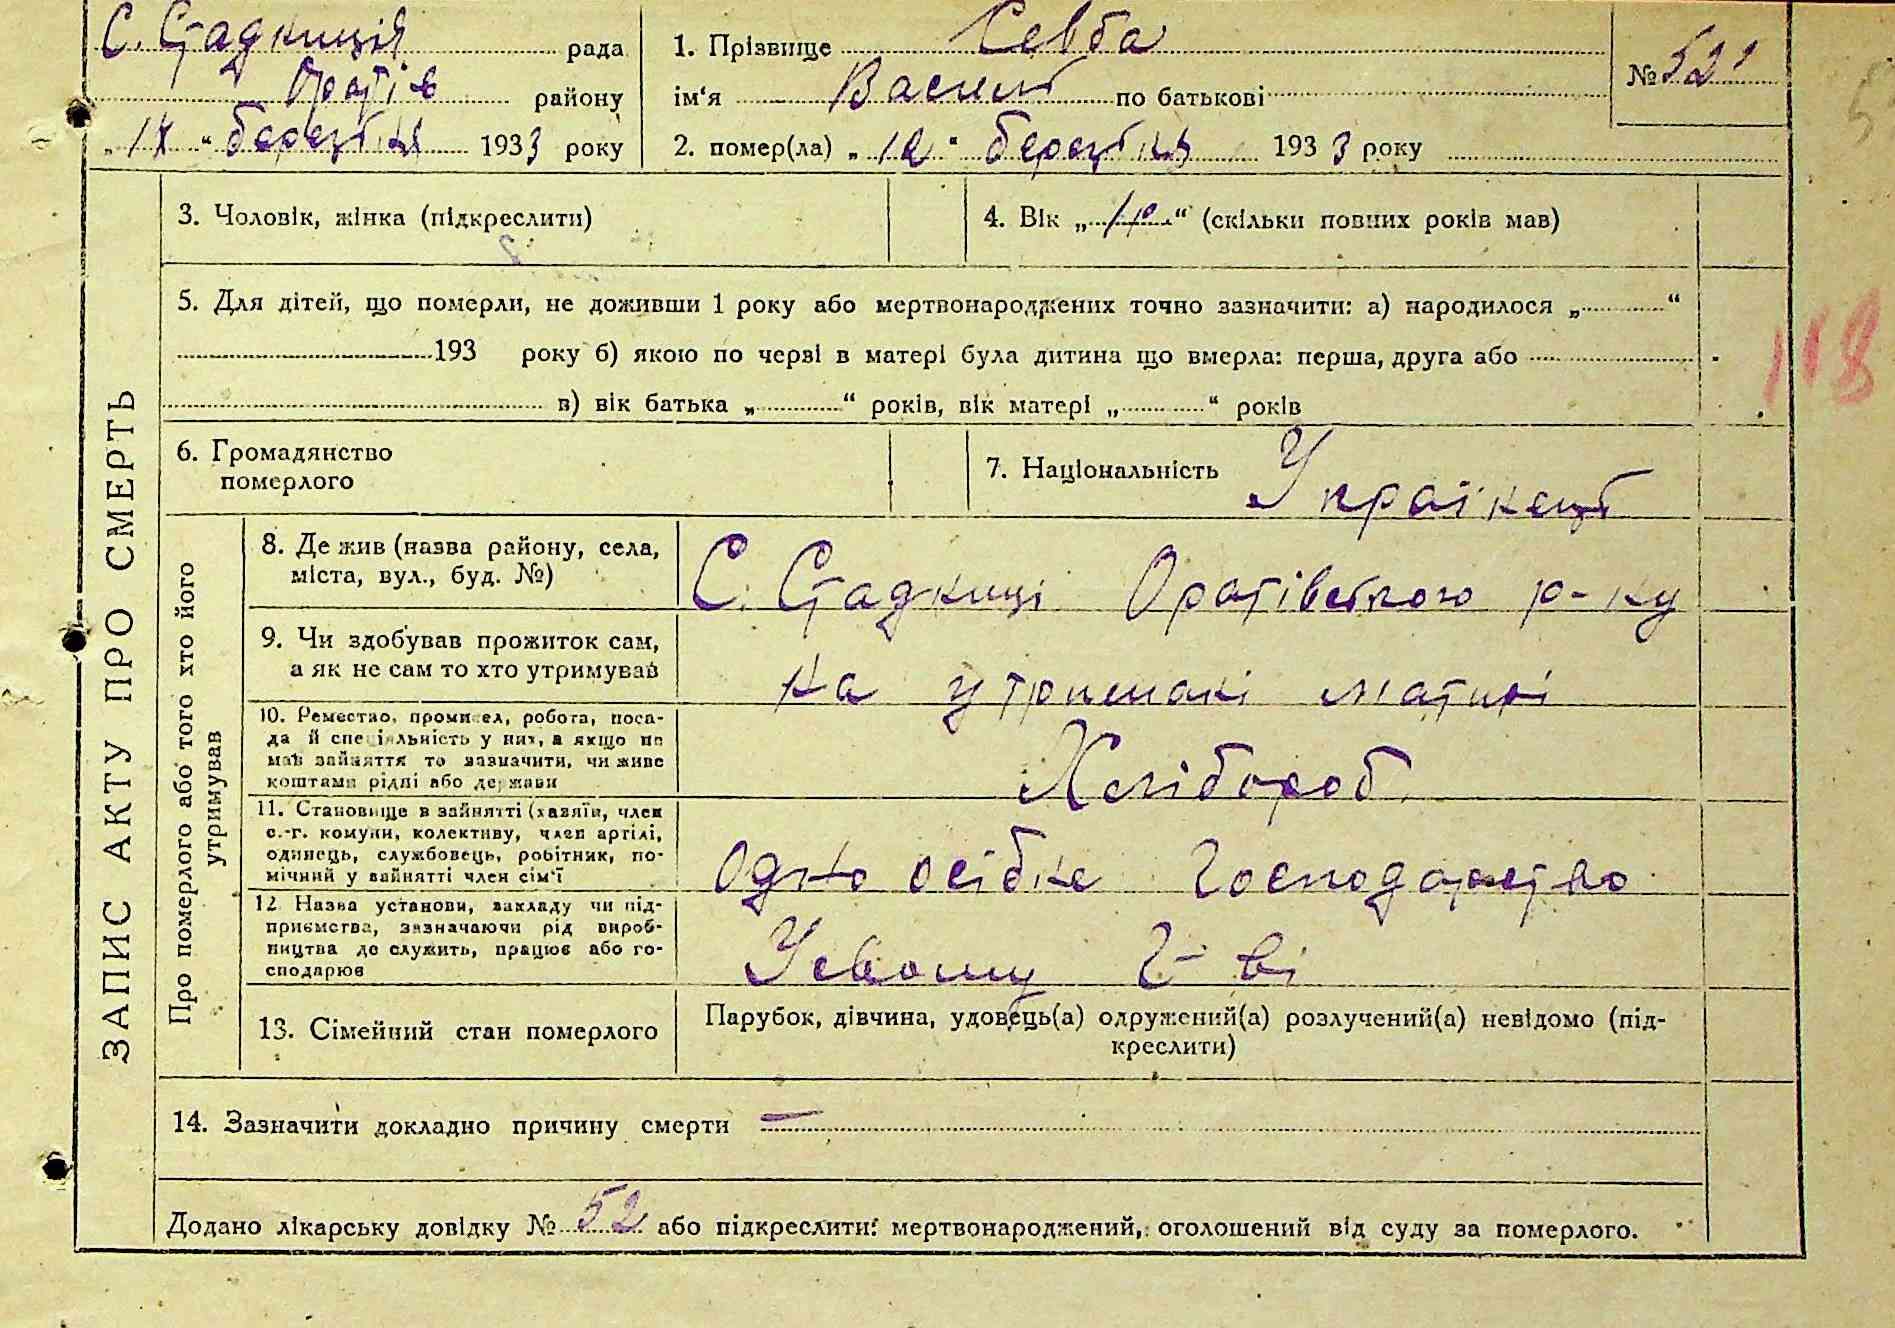 С. Стадниція рада
Оратів району
„ 1X “ березня 1933 року
1. Прізвище Севба
ім‘я Василь по батькові
№ 52
2. помер(ла) „ 12 “ березня 1933 року
3. Чоловік, жінка (підкреслити)
4. Вік „ 1 р. “ (скільки повних років мав)
5. Для дітей, що померли, не доживши 1 року або мертвонароджених точно зазначити: а) народилося „ “
193 року б) якою по черзі в матері була дитина що вмерла: перша, друга або
в) вік батька „ “ років, вік матері „ “ років
118
6. Громадянство
померлого
7. Національність Українець
ЗАПИС АКТУ ПРО СМЕРТЬ
Про померлого або того хто його
утримував
8. Де жив (назва району, села,
міста, вул., буд. №)
С. Стадниці Оратівського р-ну
9. Чи здобував прожиток сам,
а як не сам то хто утримував
на утримані матирі
10. Ремество, промисел, робота, поса-
да й спеціяльність у них, а якщо не
мав зайняття то зазначити, чи живе
коштами рідні або держави
Хлібороб
11. Становище в зайнятті (хазяїн, член
с.-г. комуни, колективу, член артілі,
одинець, службовець, робітник, по-
мічний у зайнятті член сім‘ї
Одно осібне господарство
12. Назва установи, закладу чи під-
приємства, зазначаючи рід вироб-
ництва де служить, працює або го-
сподарює
Усвому г-ві
13. Сімейний стан померлого
Парубок, дівчина, удовець(а) одружений(а) розлучений(а) невідомо (під-
креслити)
14. Зазначити докладно причину смерти —
Додано лікарську довідку № 52 або підкреслити: мертвонароджений, оголошений від суду за померлого.